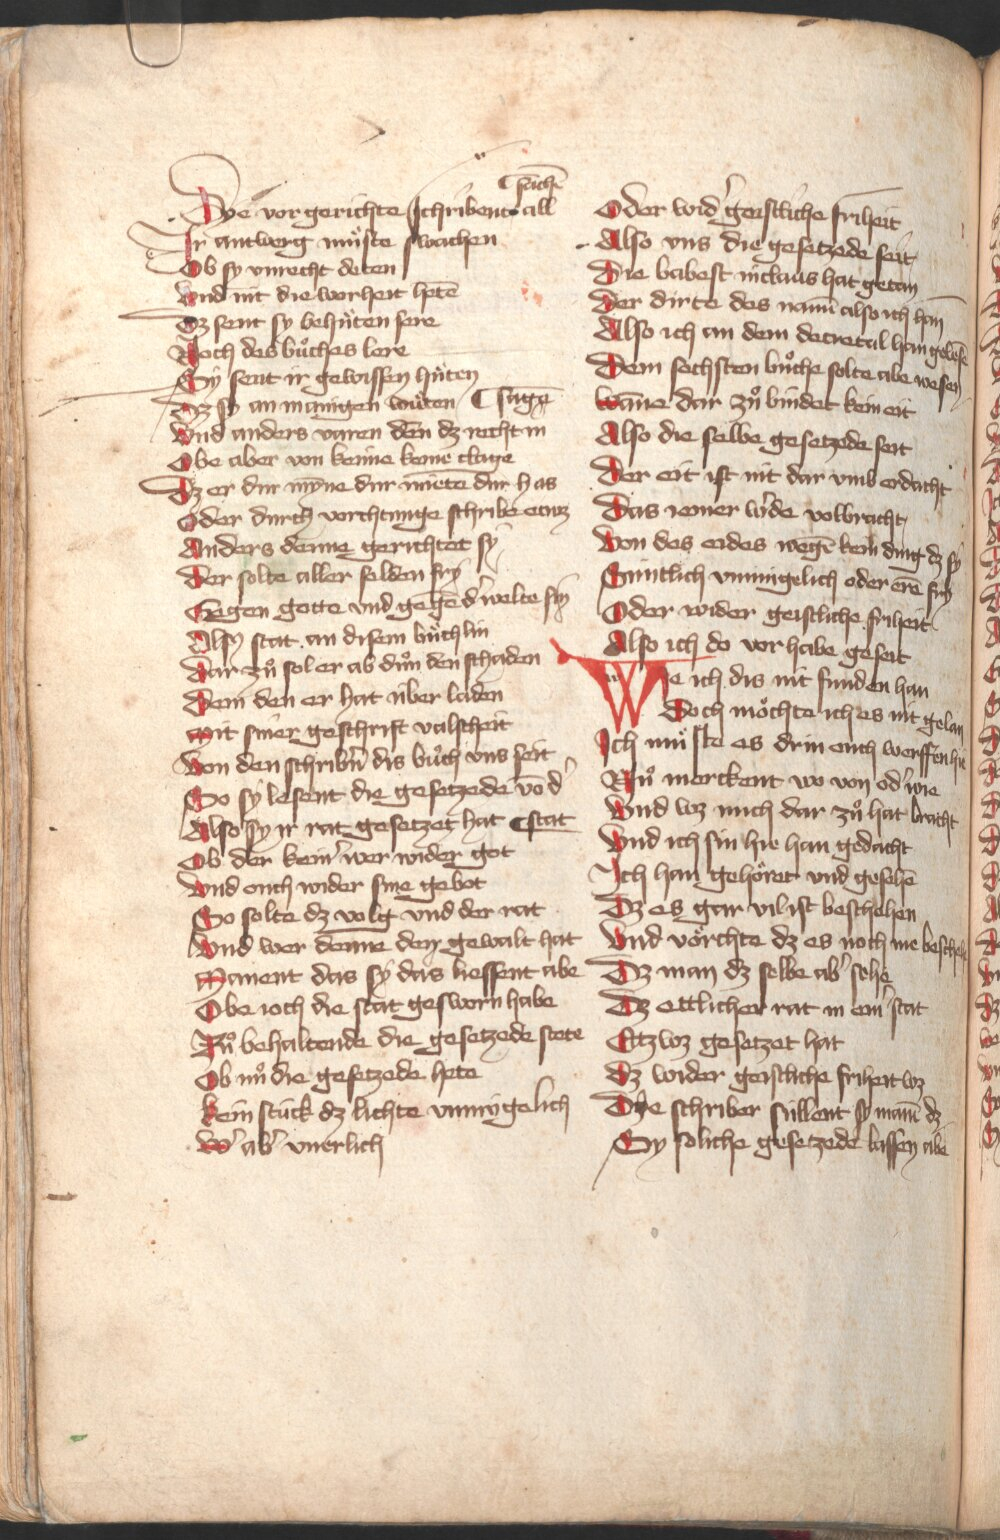 sachē
Dye vor gerichte schribent all
Ir antwerg muͦste swachen
Ob sy vnrecht deten
Vnd nit die worheit hetē
Dz sent sy behuͤten sere
Noch des buͦches lere
Sy sent ir gewissen huͤten
Dz sy an manigen wuͤten sagē
Vnd anders varen den dz recht in
Obe aber von keime keine clage
Dz er dur myne dur miete dur has
Oder durch vorchtunge schribe etwz
Anders denne gerichtet sy
Der solte aller selden fry
Gegen gotte vnd gegē d' welte sin
Alsy stat an disem buͤchlin
Dar zuͦ sol er ab duͦn den schaden
Dem den er hat über laden
Mit siner geschrift valscheit
Von den schribn' dis buͦch vns seit
So sy lesent die gesetzede vō d'
Also sy ir rat gesetzet hat stat
Ob der kein' wer wider got
Vnd ouch wider sine gebot
So solte dz volg vnd der rat
Vnd wer denne den gewalt hat
Manent das sy das liessent abe
Obe ioch die stat gesworn habe
Zuͦ behaltende die gesetzede stete
Ob nuͦ die gesetzede hete
Kein stück dz lichte vnmùgelich
W' ab' vnerlich
Oder wid' geistliche friheit
Also vns die gesetzede seit
Die babest niclaus hat getan
Der dirte des namē also ich han
Also ich an dem decretal han gelesē
Dem sechsten buͦche solte abe wesen
Wāne dar zuͦ bindet kein eit
Also die selbe gesetzede seit
Der eit ist nit dar vmb erdacht
Das iemer w'de volbracht
Von des eides wegē kein ding dz sy
Suntlich vnmùgelich oder ere fry
Oder wider geistliche friheit
Also ich do vor habe geseit
We ich dis nit funden han
Doch moͤchte ich es nit gelan
Ich muͤste es drin ouch werffen hie
Nuͦ merckent wo von od' wie
Vnd wz mich dar zuͦ hat bracht
Vnd ich sin hie han gedacht
Ich han gehoͤret vnd gesehē
Dz es gar vil ist beschehen
Vnd voͤrchte dz es noch me beschehe
Dz man dz selbe ab' sehe
Dz ettlicher rat in ein' stat
Ettzwz gesetzet hat
Dz wider geistliche friheit wz
Dye schriber süllent sy manē dz
Sy soliche gesetzede lassen abe